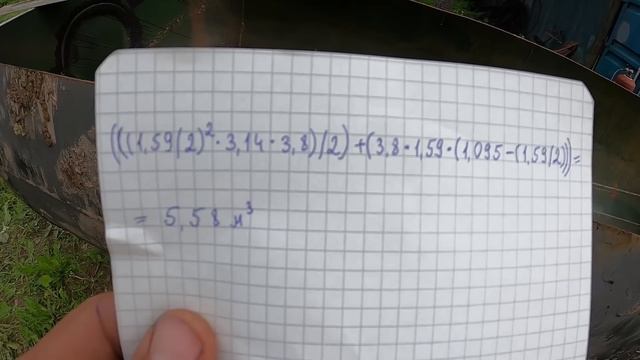 (((1,59/2)²·3,14·3,8)/2)+(3,8·1,59·(1,095-(1,59/2)))=
= 5,58 м³